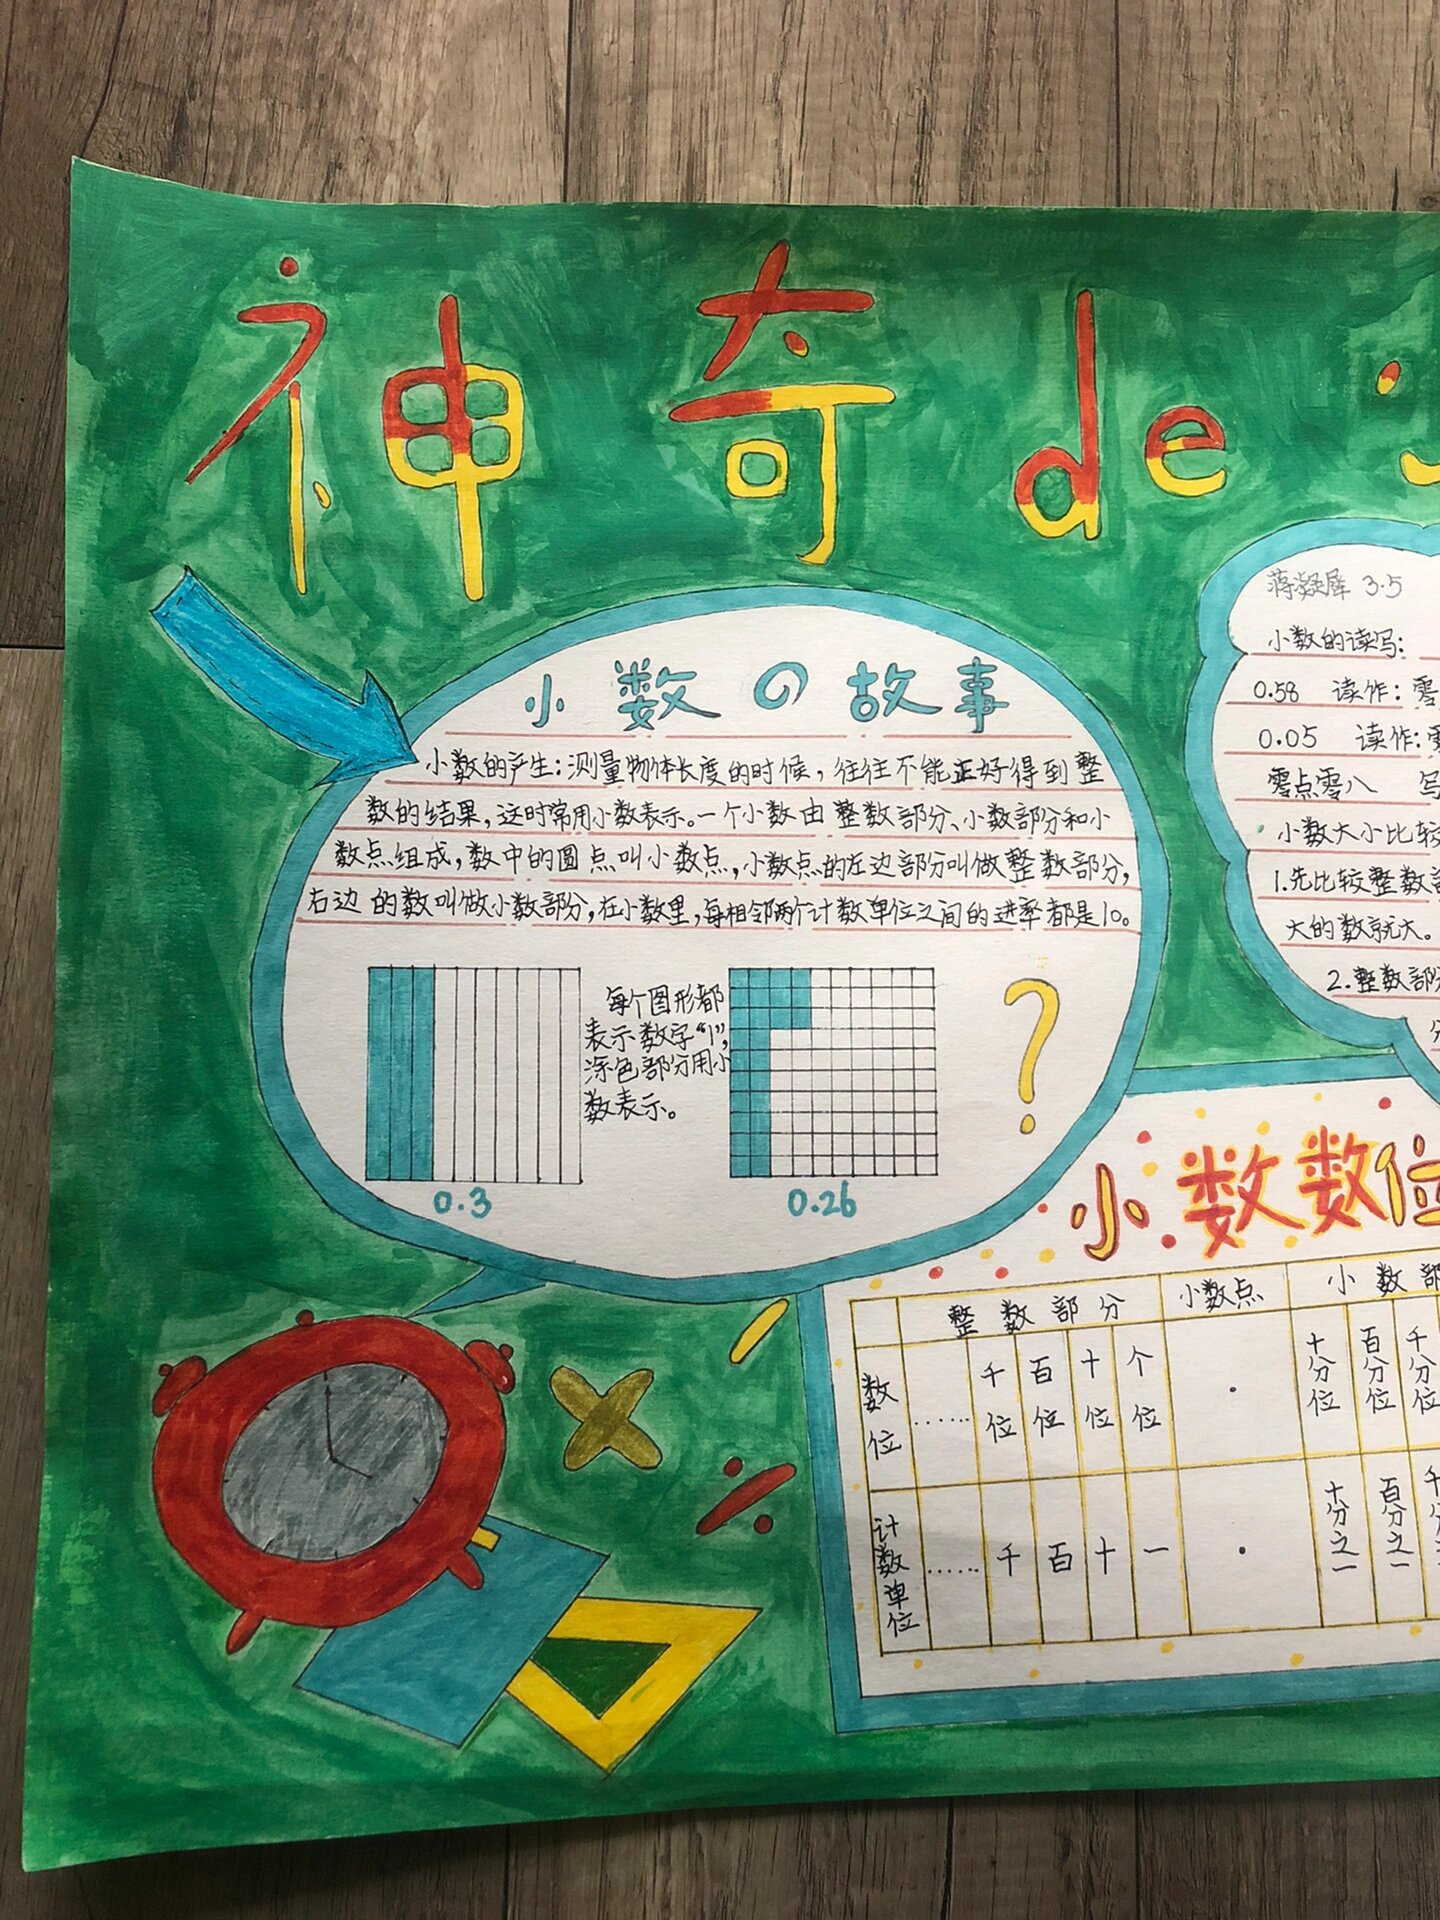 神奇de
小数の故事
小数的产生：测量物体长度的时候，往往不能正好得到整
数的结果，这时常用小数表示。一个小数由整数部分、小数部分和小
数点组成，数中的圆点叫小数点，小数点的左边部分叫做整数部分，
右边的数叫做小数部分，在小数里，每相邻两个计数单位之间的进率都是10。
每个图形都
表示数字“1”，
涂色部分用小
数表示。
?
0.3
0.26
3.5
小数的读写：
0.58 读作：零
0.05 读作：零
零点零八 写
小数大小比较
1.先比较整数部
大的数就大。
2.整数部分
小数数位
整数部分 小数点 小数部
数位 …… 千位 百位 十位 个位 · 十分位 百分位 千分位
计数单位 …… 千 百 十 一 · 十分之一 百分之一 千分